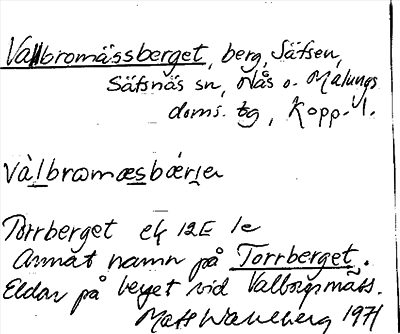 Vallbromässberget, berg, Säfsen,
Säfsnäs sn, Nås o. Malungs
doms. tg, Kopp. l.
vàlbromæsbærjer
Torrberget ek 12E 1e
Annat namn på Torrberget.
Eldar på berget vid Valborgsmäss.
Mats Wahlberg 1971